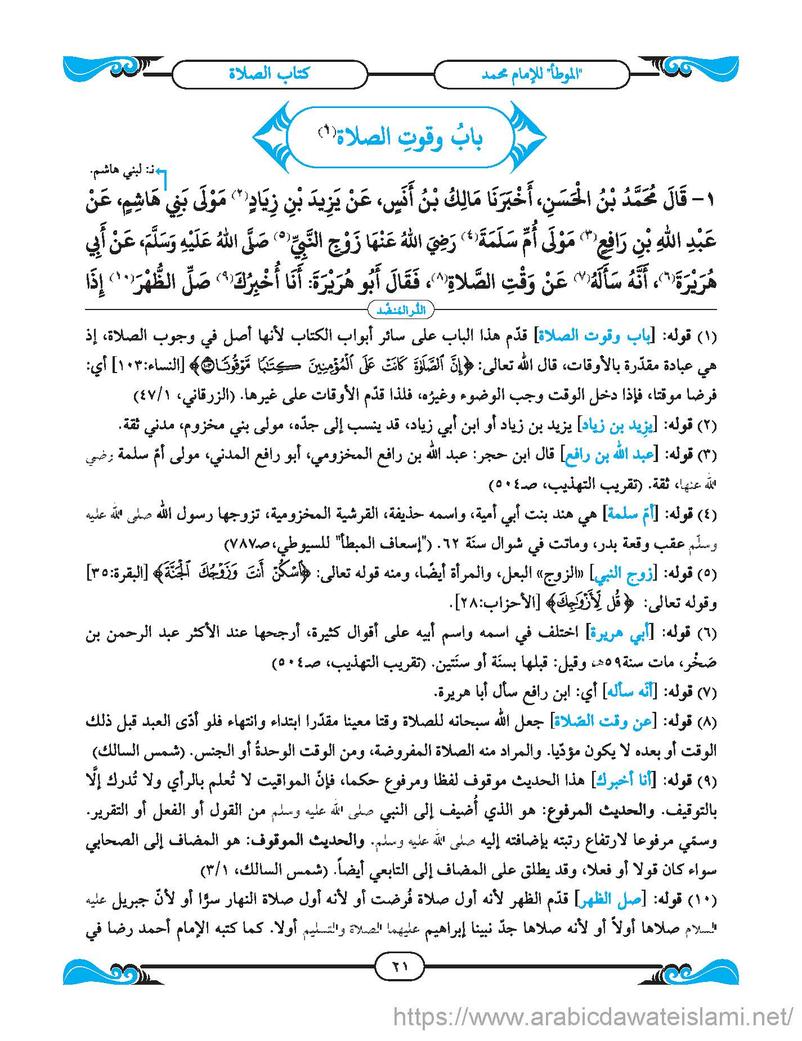 "الموطأ" للإمام محمد
كتاب الصلاة
بابُ وقوتِ الصلاة(١)
نـ: لبني هاشم.
١- قَالَ مُحَمَّدُ بْنُ الْحَسَنِ، أَخْبَرَنَا مَالِكُ بْنُ أَنَسٍ، عَنْ يَزِيدَ بْنِ زِيَادٍ(٢) مَوْلَى بَنِي هَاشِمٍ، عَنْ
عَبْدِ اللهِ بْنِ رَافِعٍ(٣) مَوْلَى أُمِّ سَلَمَةَ(٤) رَضِيَ اللهُ عَنْهَا زَوْجِ النَّبِيِّ(٥) صَلَّى اللهُ عَلَيْهِ وَسَلَّمَ، عَنْ أَبِي
هُرَيْرَةَ(٦)، أَنَّهُ سَأَلَهُ(٧) عَنْ وَقْتِ الصَّلَاةِ(٨)، فَقَالَ أَبُو هُرَيْرَةَ: أَنَا أُخْبِرُكَ(٩) صَلِّ الظُّهْرَ(١٠) إِذَا
الدُّر المُنضَّد
(١) قوله: [باب وقوت الصلاة] قدّم هذا الباب على سائر أبواب الكتاب لأنها أصل في وجوب الصلاة، إذ
هي عبادة مقدّرة بالأوقات، قال الله تعالى: ﴿إِنَّ الصَّلَاةَ كَانَتْ عَلَى الْمُؤْمِنِينَ كِتَابًا مَوْقُوتًا﴾ [النساء:١٠٣] أي:
فرضا موقتا، فإذا دخل الوقت وجب الوضوء وغيرُه، فلذا قدّم الأوقات على غيرها. (الزرقاني، ٤٧/١)
(٢) قوله: [يزِيد بن زياد] يزيد بن زياد أو ابن أبي زياد، قد ينسب إلى جدّه، مولى بني مخزوم، مدني ثقة.
(٣) قوله: [عبد الله بن رافع] قال ابن حجر: عبد الله بن رافع المخزومي، أبو رافع المدني، مولى أمّ سلمة رضي
الله عنها، ثقة. (تقريب التهذيب، صـ٥٠٤)
(٤) قوله: [أمّ سلمة] هي هند بنت أبي أمية، واسمه حذيفة، القرشية المخزومية، تزوجها رسول الله صلى الله عليه
وسلّم عقب وقعة بدر، وماتت في شوال سنَة ٦٢. ("إسعاف المبطأ" للسيوطي،صـ٧٨٧)
(٥) قوله: [زوج النبي] «الزوج» البعل، والمرأة أيضًا، ومنه قوله تعالى: ﴿اسْكُنْ أَنتَ وَزَوْجُكَ الْجَنَّةَ﴾ [البقرة:٣٥]
وقوله تعالى: ﴿قُل لِّأَزْوَاجِكَ﴾ [الأحزاب:٢٨].
(٦) قوله: [أبي هريرة] اختلف في اسمه واسم أبيه على أقوال كثيرة، أرجحها عند الأكثر عبد الرحمن بن
صَخْر، مات سنة٥٩هـ، وقيل: قبلها بسنَة أو سنَتين. (تقريب التهذيب، صـ٥٠٤)
(٧) قوله: [أنّه سأله] أي: ابن رافع سأل أبا هريرة.
(٨) قوله: [عن وقت الصّلاة] جعل الله سبحانه للصلاة وقتا معينا مقدّرا ابتداء وانتهاء فلو أدّى العبد قبل ذلك
الوقت أو بعده لا يكون مؤدّيا. والمراد منه الصلاة المفروضة، ومن الوقت الوحدةُ أو الجنس. (شمس السالك)
(٩) قوله: [أنا أخبرك] هذا الحديث موقوف لفظا ومرفوع حكما، فإنّ المواقيت لا تُعلم بالرأي ولا تُدرك إلَّا
بالتوقيف. والحديث المرفوع: هو الذي أُضيف إلى النبي صلى الله عليه وسلم من القول أو الفعل أو التقرير.
وسمّي مرفوعا لارتفاع رتبته بإضافته إليه صلى الله عليه وسلم. والحديث الموقوف: هو المضاف إلى الصحابي
سواء كان قولا أو فعلا، وقد يطلق على المضاف إلى التابعي أيضاً. (شمس السالك، ٣/١)
(١٠) قوله: [صل الظهر] قدّم الظهر لأنه أول صلاة فُرضت أو لأنه أول صلاة النهار سرًّا أو لأنّ جبريل عليه
السلام صلاها أولاً أو لأنه صلاها جدّ نبينا إبراهيم عليهما الصلاة والتسليم أولا. كما كتبه الإمام أحمد رضا في
٢١
https://www.arabicdawateislami.net/